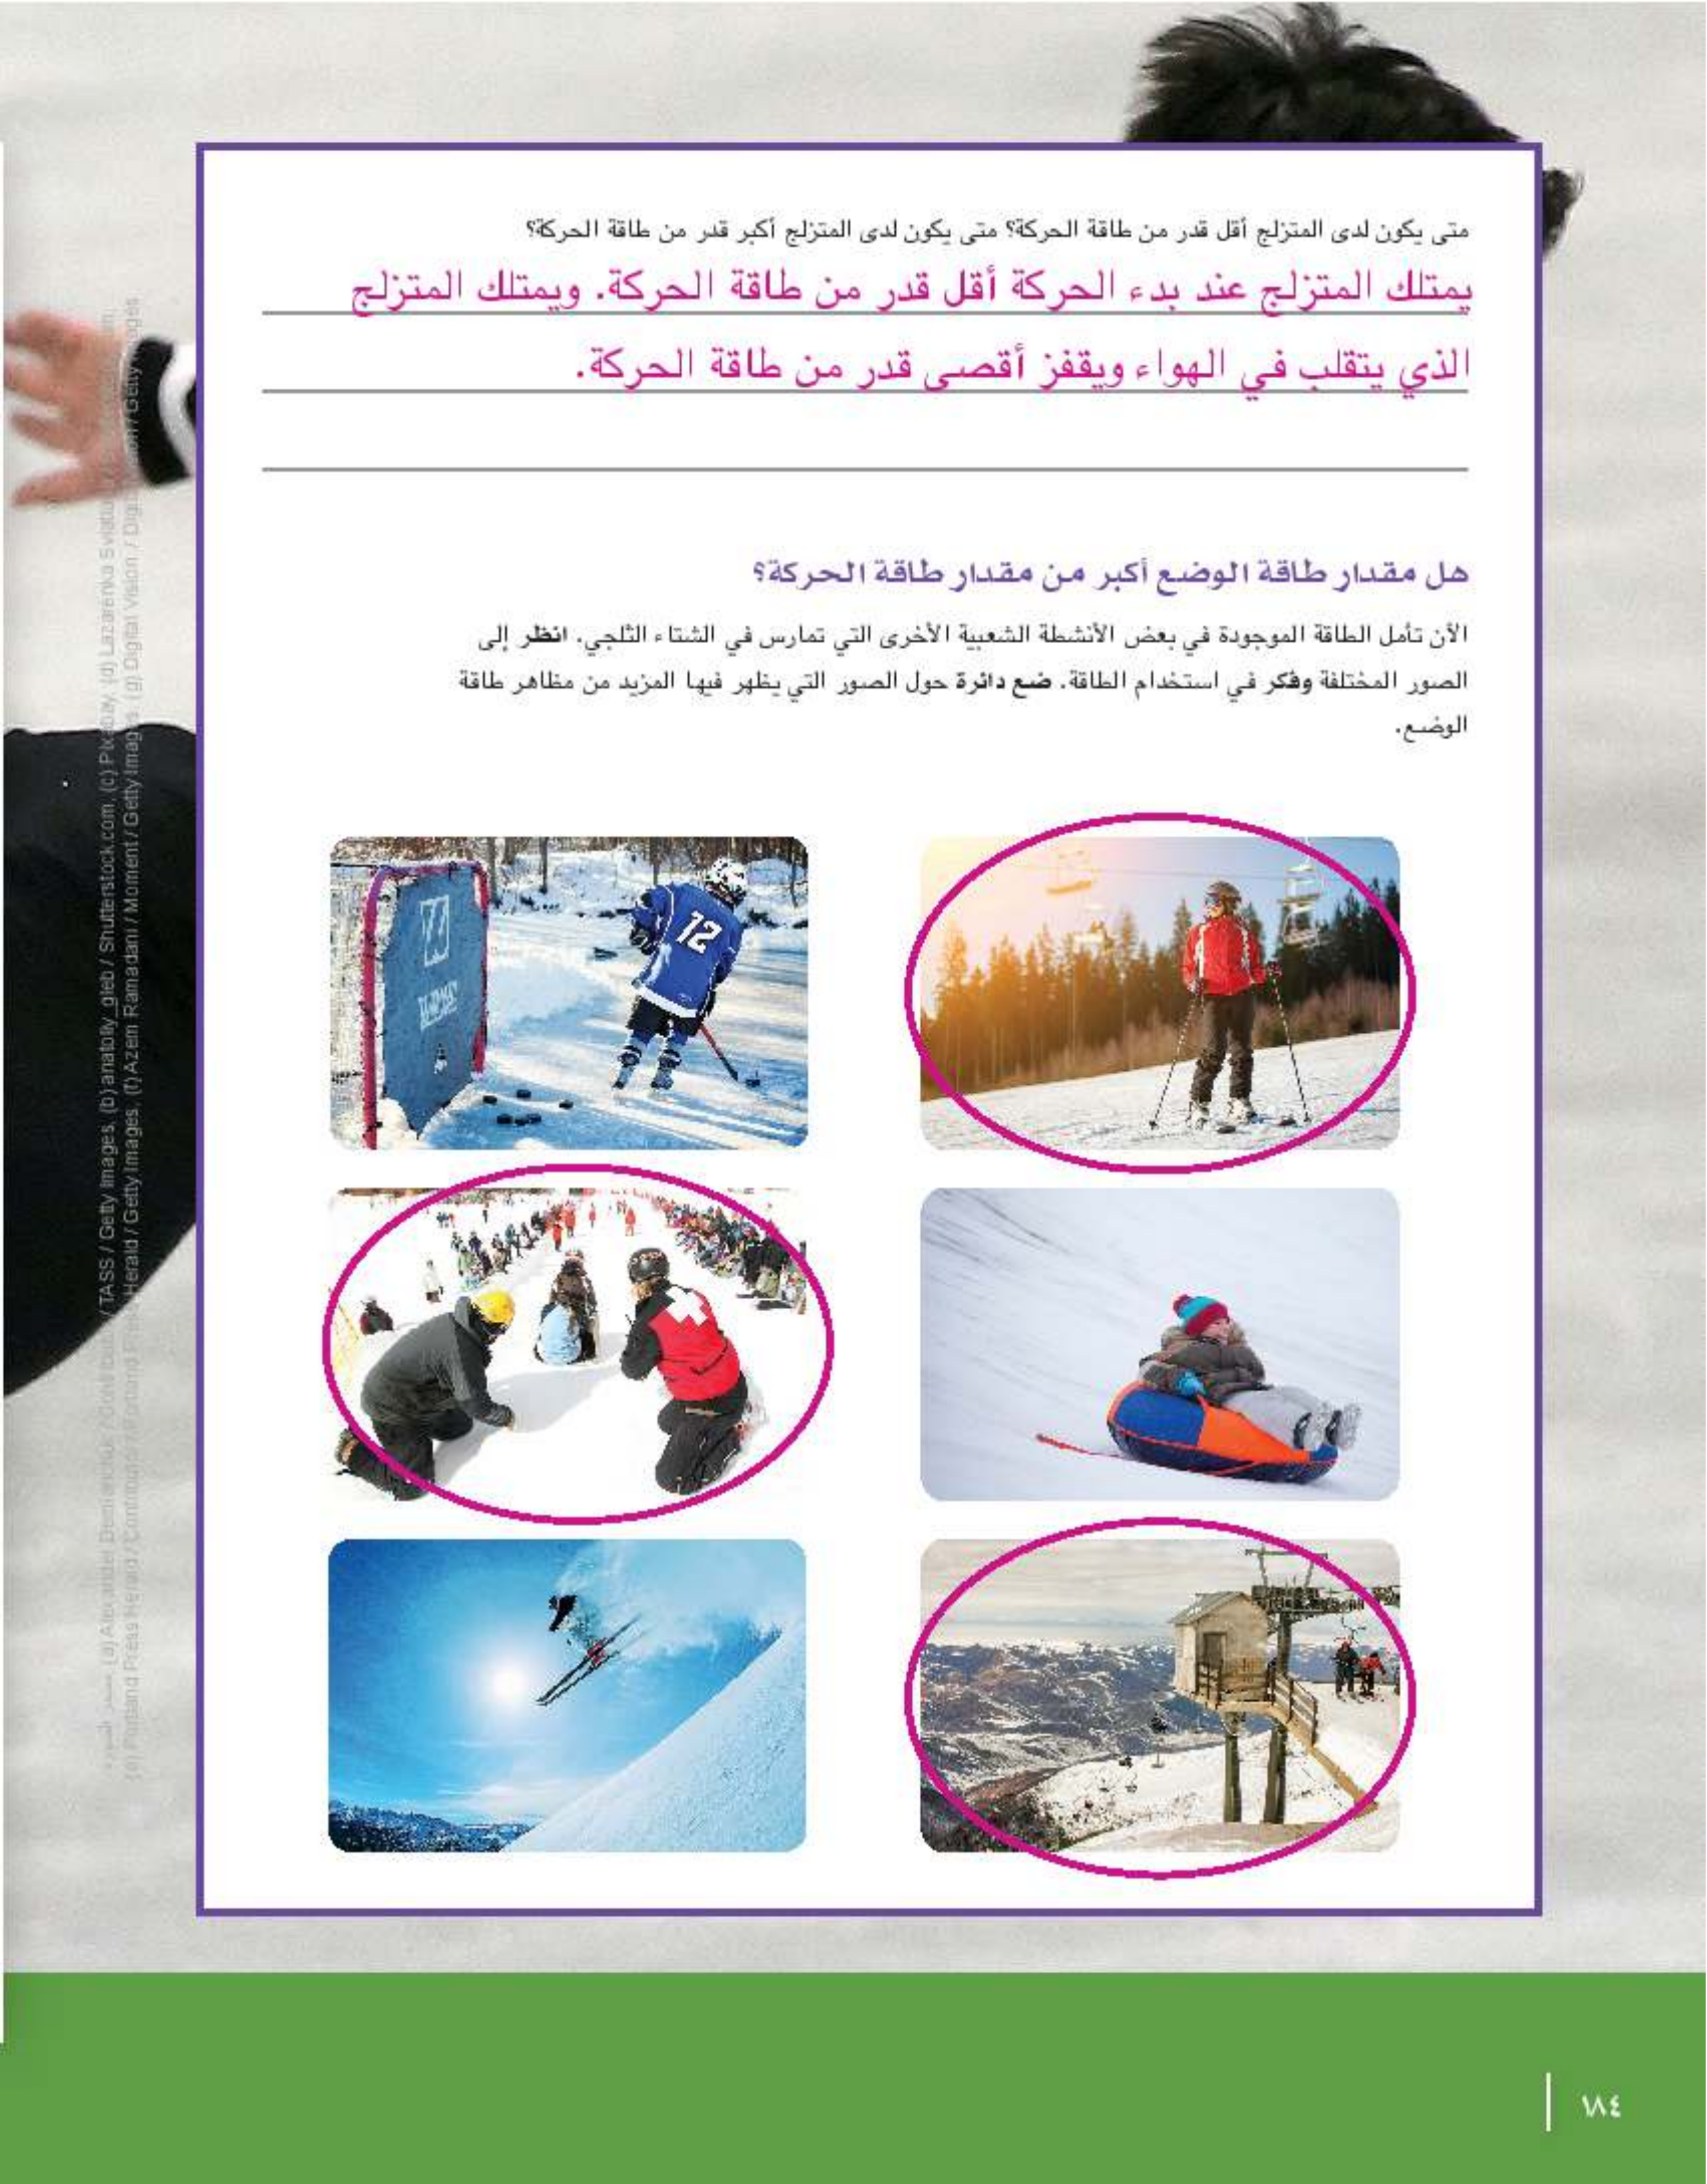 متى يكون لدى المتزلج أقل قدر من طاقة الحركة؟ متى يكون لدى المتزلج أكبر قدر من طاقة الحركة؟
يمتلك المتزلج عند بدء الحركة أقل قدر من طاقة الحركة. ويمتلك المتزلج
الذي يتقلب في الهواء ويقفز أقصى قدر من طاقة الحركة.
هل مقدار طاقة الوضع أكبر من مقدار طاقة الحركة؟
الآن تأمل الطاقة الموجودة في بعض الأنشطة الشعبية الأخرى التي تمارس في الشتاء الثلجي. انظر إلى
الصور المختلفة وفكر في استخدام الطاقة. ضع دائرة حول الصور التي يظهر فيها المزيد من مظاهر طاقة
الوضع.
12
/TASS / Getty Images, (b) anatoliy_gleb / Shutterstock.com, (c) Pixabay, (d) Lazarenka Sviatl
Herald / Getty Images, (f) Azem Ramadani / Moment / Getty Images, (g) Digital Vision / Getty Images
١٨٤